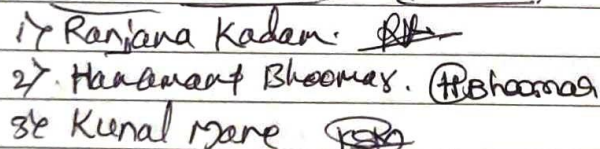 1) Ranjana Kadam.
2) Hanamant Bhoomar. HBhoomar
3) Kunal Mane